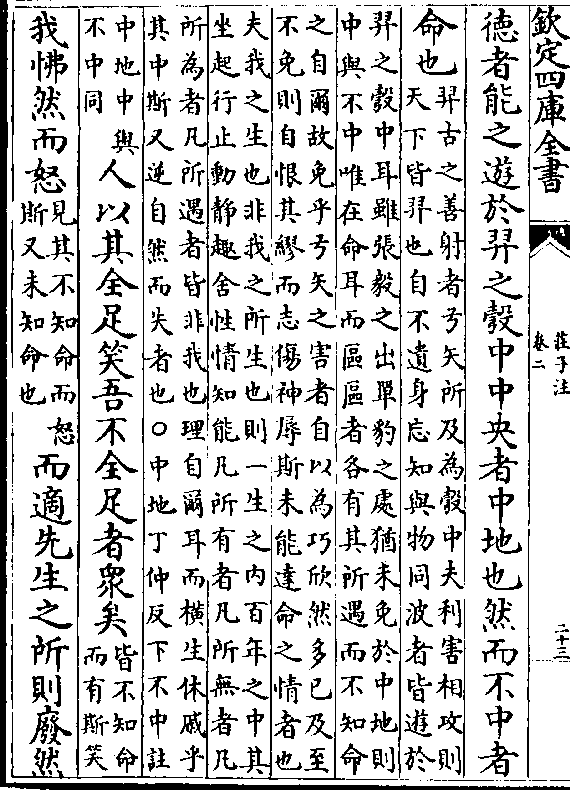 欽定四庫全書
莊子注
卷二
二十三
德者能之遊於羿之彀中中央者中地也然而不中者
命也
羿古之善射者弓矢所及為彀中夫利害相攻則
天下皆羿也自不遺身忘知與物同波者皆遊於
羿之彀中耳雖張毅之出單豹之處猶未免於中地則
中與不中唯在命耳而區區者各有其所遇而不知命
之自爾故免乎弓矢之害者自以為巧欣然多已及至
不免則自恨其繆而志傷神辱斯未能達命之情者也
夫我之生也非我之所生也則一生之內百年之中其
坐起行止動靜趣舍性情知能凡所有者凡所無者凡
所為者凡所遇者皆非我也理自爾耳而橫生休戚乎
其中斯又逆自然而失者也○中地丁仲反下不中註
中地中與
不中同
人以其全足笑吾不全足者衆矣
皆不知命
而有斯笑
我怫然而怒
見其不知命而怒
斯又未知命也
而適先生之所則廢然